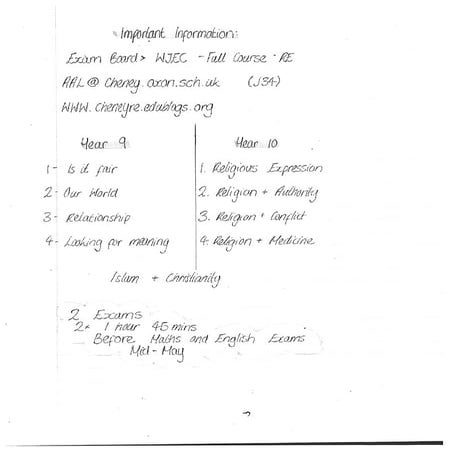 Important Information:
Exam Board > WJEC - Full Course - RE
AAL@Cheney.oxon.sch.uk (J3A)
WWW.Cheneyre.edublogs.org
Year 9
1- Is it fair
2- Our World
3- Relationship
4- Looking for meaning
Year 10
1. Religious Expression
2. Religion + Authority
3. Religion + Conflict
4. Religion + Medicine
Islam + Christianity
2 Exams
2x 1 hour 45 mins
Before Maths and English Exams
Mid-May